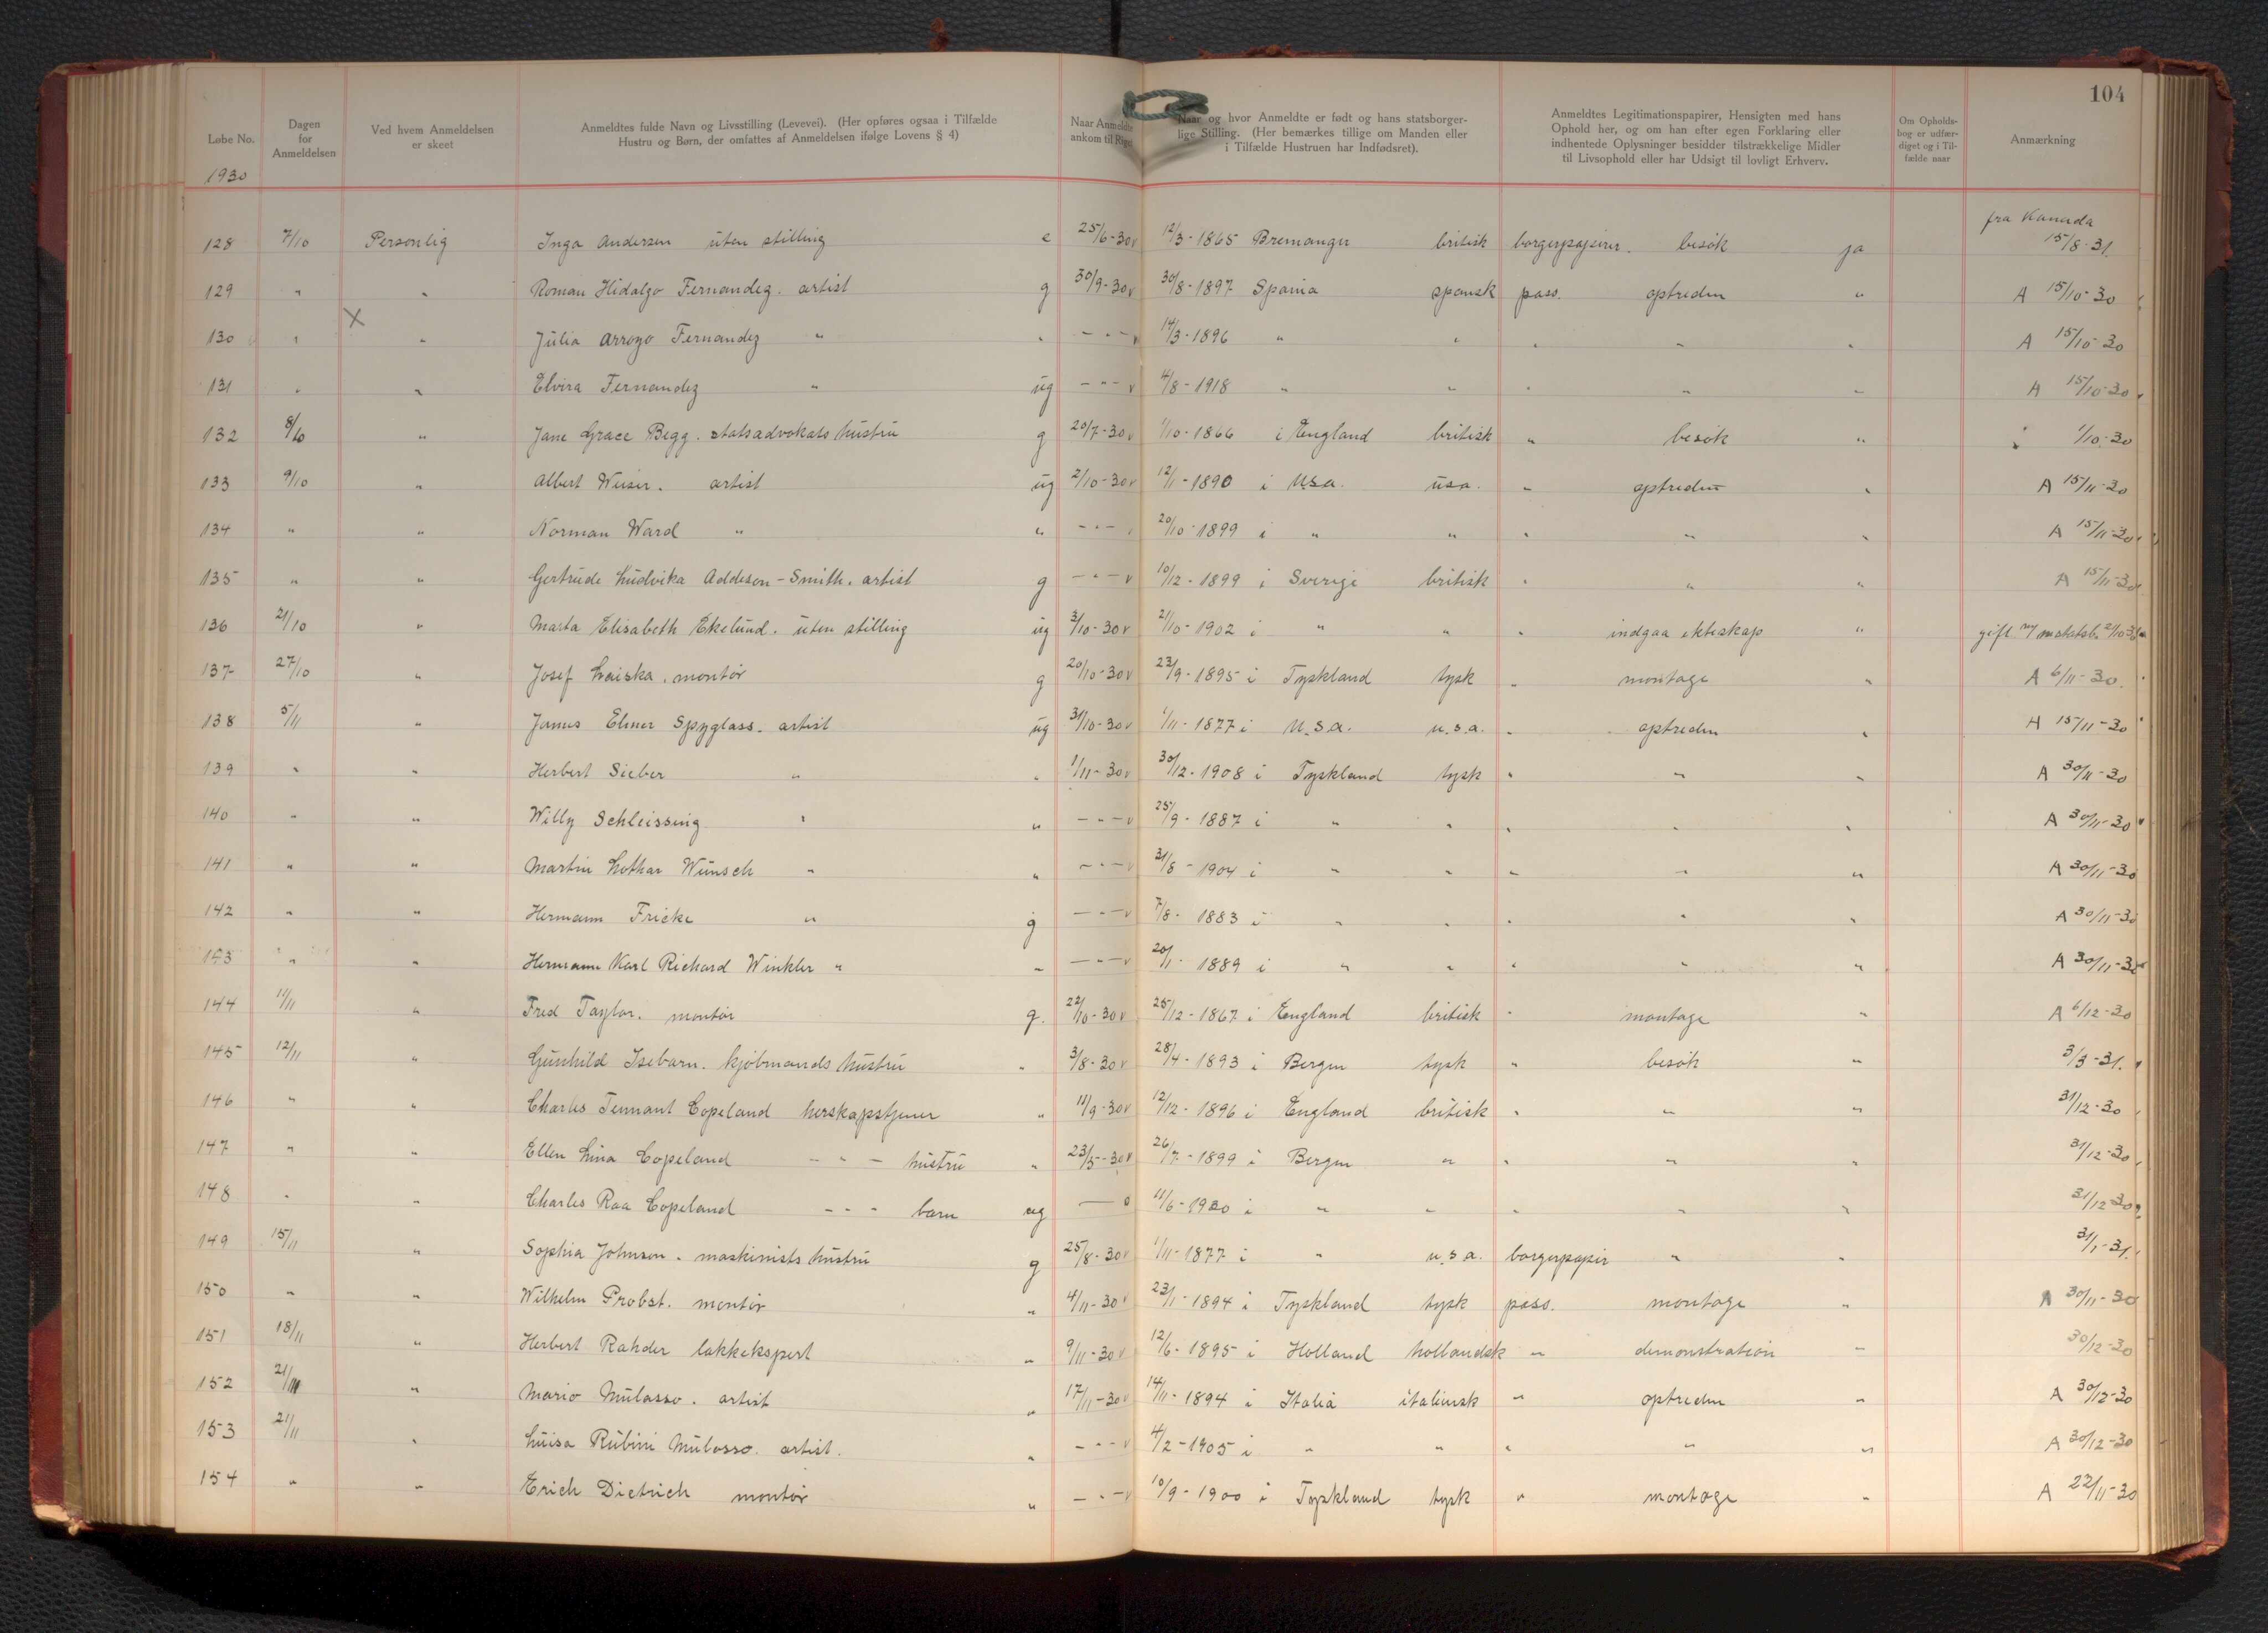 104
Løbe No. | Dagen for Anmeldelsen | Ved hvem Anmeldelsen er skeet | Anmeldtes fulde Navn og Livsstilling (Levevei). (Her opføres ogsaa i Tilfælde Hustru og Børn, der omfattes af Anmeldelsen ifølge Lovens § 4) | Naar Anmeldte ankom til Riget | Naar og hvor Anmeldte er født og hans statsborgerlige Stilling. (Her bemærkes tillige om Manden eller i Tilfælde Hustruen har Indfødsret). | Anmeldtes Legitimationspapirer, Hensigten med hans Ophold her, og om han efter egen Forklaring eller indhentede Oplysninger besidder tilstrækkelige Midler til Livsophold eller har Udsigt til lovligt Erhverv. | Om Opholdsbog er udfærdiget og i Tilfælde naar | Anmærkning
1930
fra Kanada
128 7/10 Personlig Inga Andersen uten stilling e 25/6-30 v 12/3-1865 Bremanger britisk borgerpapirer. besøk ja 15/8-31.
129 " " Roman Hidalgo Fernandez. artist g 30/9-30 v 30/8-1897 Spania spansk pass. optreden " A 15/10-30
130 " X " Julia Arroyo Fernandez " " - " - v 14/3-1896 " " " " " A 15/10-30
131 " " Elvira Fernandez " ug - " - v 4/8-1918 " " " " " A 15/10-30
132 8/10 " Jane Grace Begg. statsadvokats hustru g 20/7-30 v 1/10-1866 i England britisk " besøk " 1/10-30
133 9/10 " Albert Weiser. artist ug 2/10-30 v 12/11-1890 i U.S.a. usa. " optreden " A 15/11-30
134 " " Norman Ward " " - " - 20/10-1899 i " " " " " A 15/11-30
135 " " Gertrude Ludvika Addeson-Smith. artist g - " - v 10/12-1899 i Sverige britisk " " " A 15/11-30
136 21/10 " Marta Elisabeth Ekelund. uten stilling ug 3/10-30 v 2/10-1902 i " " " indgaa ekteskap " gift m/ n. statsb. 21/10 30
137 27/10 " Josef Laiska. montør g 20/10-30 v 23/9-1895 i Tyskland tysk " montage " A 6/11-30.
138 5/11 " James Elmer Spyglass. artist ug 31/10-30 v 1/11-1877 i U.S.a. u.s.a. " optreden " A 15/11-30
139 " " Herbert Sieber " " 1/11-30 v 30/12-1908 i Tyskland tysk " " " A 30/11-30
140 " " Willy Schleissing " " - " - v 25/9-1887 i " " " " " A 30/11-30
141 " " Martin Lothar Wünsch " " - " - v 31/8-1904 i " " " " " A 30/11-30
142 " " Hermann Fricke " g - " - v 7/8-1883 i " " " " " A 30/11-30
143 " " Hermann Karl Richard Winkler " " - " - v 20/1-1889 i " " " " " A 30/11-30
144 11/11 " Fred Taylor. montør g. 22/10-30 v 25/12-1867 i England britisk " montage " A 6/12-30
145 12/11 " Gunhild Isebarn. kjøbmands hustru " 3/8-30 v 28/4-1893 i Bergen tysk " besøk " 3/3-31.
146 " " Charles Tennant Copeland herskapstjener " 11/9-30 v 12/12-1896 i England britisk " " " 31/12-30
147 " " Ellen Lina Copeland - " - hustru " 23/5-30 v 26/7-1899 i Bergen " " " " 31/12-30
148 " " Charles Raa Copeland - " - barn ug — 11/6-1920 i " " " " " 31/12 30
149 15/11 " Sophia Johnson. maskinists hustru g 25/8-30 v 1/11-1877 i " u.s.a. borgerpapir " " 31/1-31.
150 " " Wilhelm Probst. montør " 4/11-30 v 23/1-1894 i Tyskland tysk pass. montage " A 30/11-30
151 18/11 " Herbert Rahder lakkekspert " 9/11-30 v 12/6-1895 i Holland hollandsk " demonstration " 30/12-30
152 21/11 " Mario Mulasso. artist " 17/11-30 v 14/11-1894 i Italia italiensk " optreden " A 30/12-30
153 21/11 " Luisa Rubini Mulasso. artist. " - " - v 4/2-1905 i " " " " " A 30/12-30
154 " " Erich Dietrich montør " - " - v 10/9-1900 i Tyskland tysk " montage " A 22/11-30